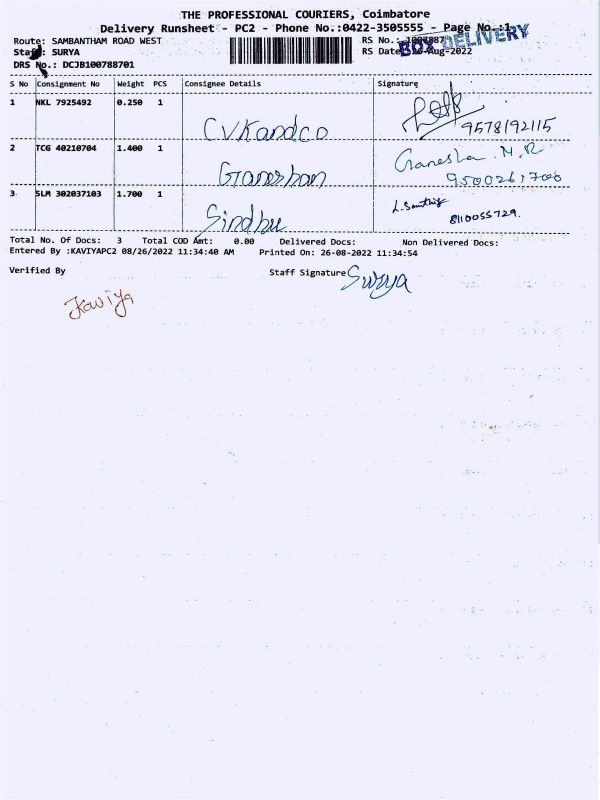 THE PROFESSIONAL COURIERS, Coimbatore
Delivery Runsheet - PC2 - Phone No.:0422-3505555 - Page No.:1
Route: SAMBANTHAM ROAD WEST
RS No.:
BOX DELIVERY
Staff: SURYA
RS Date: 26-Aug-2022
DRS No.: DCJB100788701
S No Consignment No Weight PCS Consignee Details Signature
1 NKL 7925492 0.250 1
CVKandco 9578192115
2 TCG 40210704 1.400 1 Ganesha. M.R
Ganeshan 9500261700
3 SLM 302037103 1.700 1
Sindhu 8110055729.
Total No. Of Docs: 3 Total COD Amt: 0.00 Delivered Docs: Non Delivered Docs:
Entered By :KAVIYAPC2 08/26/2022 11:34:40 AM Printed On: 26-08-2022 11:34:54
Verified By Staff Signature Surya
Kaviya